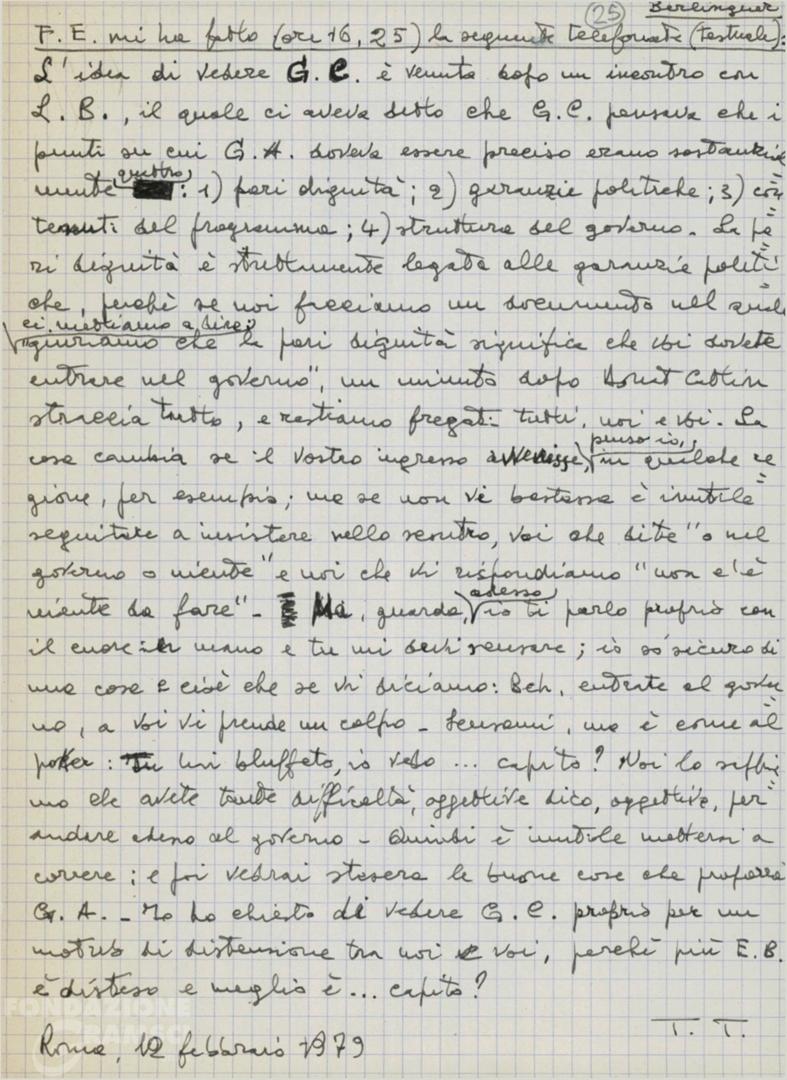 (25) Berlinguer
F. E. mi ha fatto (ore 16,25) la seguente telefonata (testuale):
L'idea di vedere G. C. è venuta dopo un incontro con
L. B., il quale ci aveva detto che G. C. pensava che i
punti su cui G. A. doveva essere preciso erano sostanzial=
mente quattro: 1) pari dignità; 2) garanzie politiche; 3) con=
tenuti del programma; 4) struttura del governo. La pa=
ri dignità è strettamente legata alle garanzie politi=
che, perchè se noi facciamo un documento nel quale
ci mettiamo a dire:
che la pari dignità significa che voi dovete
entrare nel governo", un minuto dopo Donat Cattin
straccia tutto, e restiamo fregati tutti, noi e voi. La
cosa cambia se il vostro ingresso avvenisse, penso io, in qualche re=
gione, per esempio; ma se non vi bastasse è inutile
seguitare a insistere nello scontro, voi che dite "o nel
governo o niente" e noi che vi rispondiamo "non c'è
niente da fare" - Ma, guarda, adesso io ti parlo proprio con
il cuore in mano e tu mi devi scusare; io so' sicuro di
una cosa e cioè che se vi diciamo: Beh, entrate al gover=
no, a voi vi prende un colpo - Scusami, ma è come al
poker: Tu bluffeto, io vedo ... capito? Noi lo sappia=
mo che avete tante difficoltà, oggettive dico, oggettive, per
andare adesso al governo - Quindi è inutile mettersi a
correre; e poi vedrai stasera le buone cose che proporrà
G. A. - Io ho chiesto di vedere G. C. proprio per un
motivo di distensione tra noi e voi, perchè più E. B.
è disteso e meglio è ... capito?
T. T.
Roma, 12 febbraio 1979
FONDAZIONE
GRAMSCI